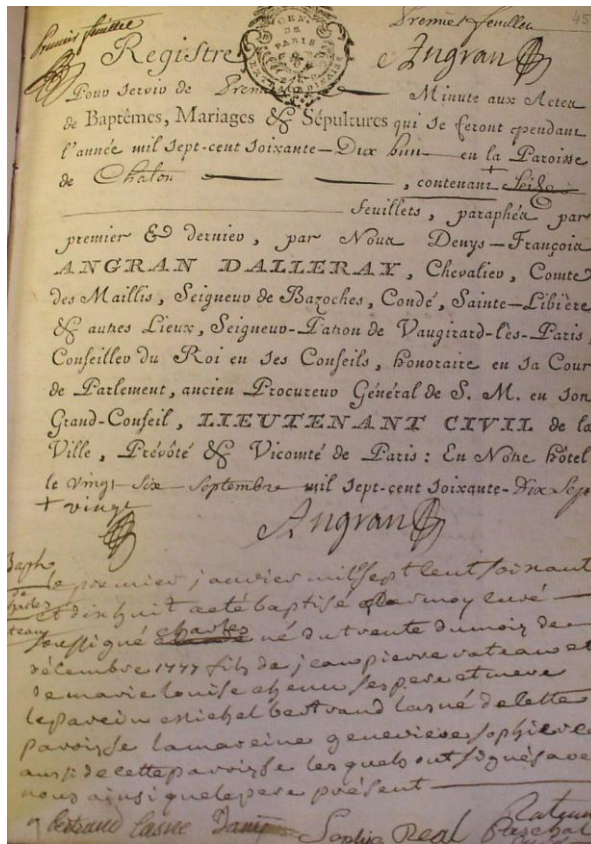 premier feuillet
Premier feuillet
45
GEN.
DE
PARIS
Registre
Angran
Pour servir de Premiere Minute aux Actes
de Baptêmes, Mariages & Sépultures qui se feront pendant
l'année mil sept-cent soixante-Dix huit en la Paroisse
de Chatou, contenant
feuillets, paraphés par
premier & dernier, par Nous Denys-François
ANGRAN DALLERAY, Chevalier, Comte
des Maillis, Seigneur de Bazoches, Condé, Sainte-Libière
& autres Lieux, Seigneur-Patron de Vaugirard-lès-Paris,
Conseiller du Roi en ses Conseils, honoraire en sa Cour
de Parlement, ancien Procureur Général de S. M. en son
Grand-Conseil, LIEUTENANT CIVIL de la
Ville, Prévôté & Vicomté de Paris : En Notre hôtel
le vingt six Septembre mil sept-cent soixante-Dix Sept
+ vingt
Angran
Bapt
le premier janvier mil sept cent soixante
de
et dix huit a eté baptisé par moy curé
soussigné charles né du trente du mois de
décembre 1777 fils de jean pierre rateau et
de marie louise chenu ses pere et mere
le parein michel bertrand lasné de cette
paroisse la mareine genevieve sophie
aussi de cette paroisse lesquels ont signés avec
nous ainsi que le pere présent
bertrand lasne
Sophie Real